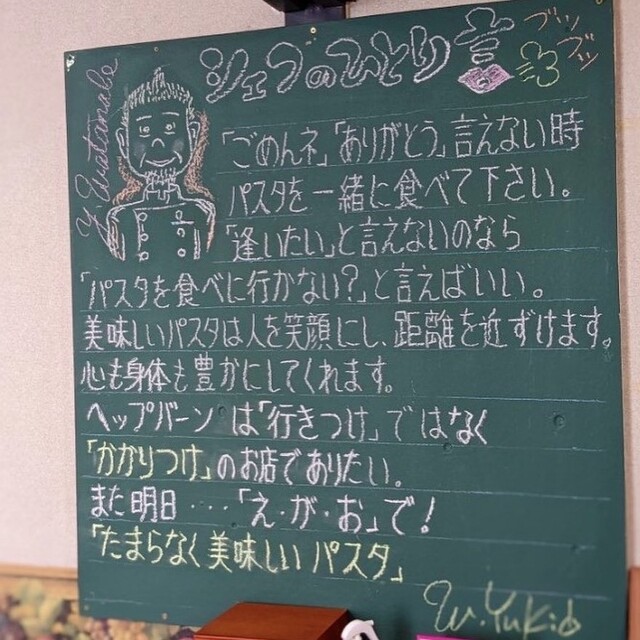 シェフのひとり言
ブツ
ブツ
「ごめんネ」「ありがとう」言えない時
パスタを一緒に食べて下さい。
「逢いたい」と言えないのなら
「パスタを食べに行かない?」と言えばいい。
美味しいパスタは人を笑顔にし、距離を近ずけます。
心も身体も豊かにしてくれます。
ヘップバーンは「行きつけ」ではなく
「かかりつけ」のお店でありたい。
また明日‥‥「え・が・お」で!
「たまらなく美味しいパスタ」
W.Yukio